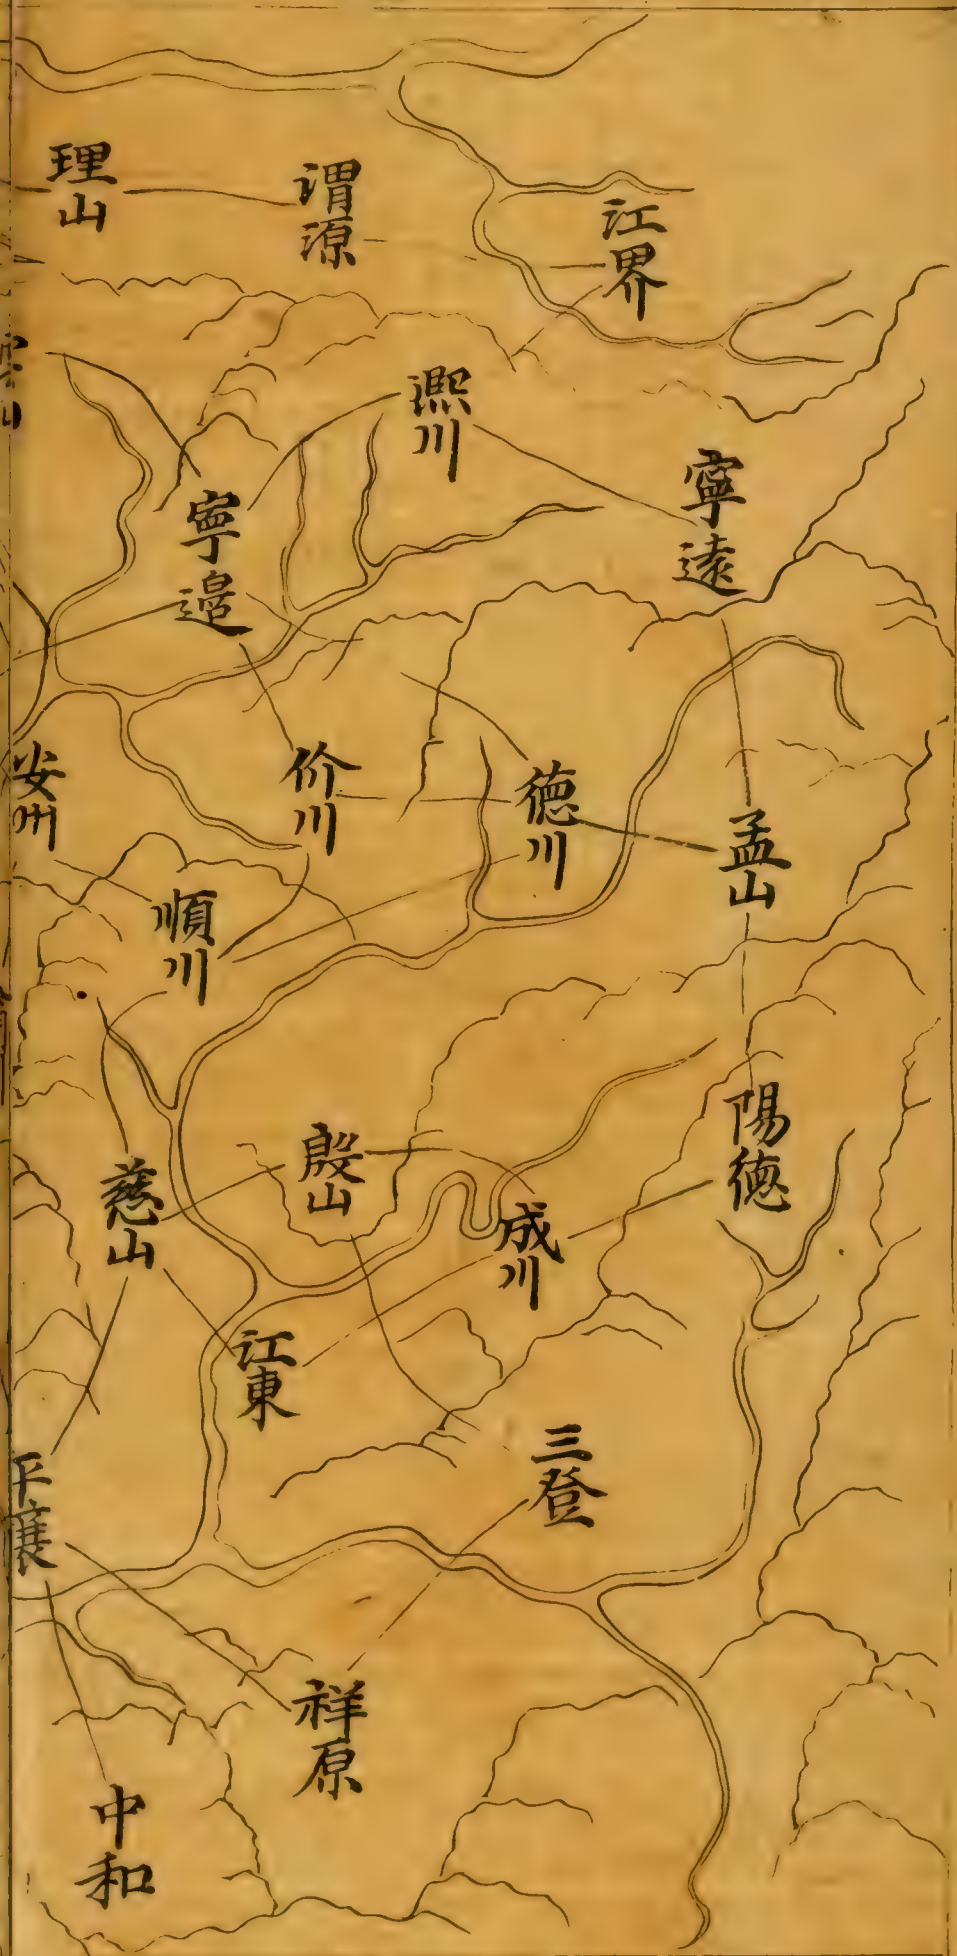 理山
渭源
江界
熙川
寧遠
寧邊
安州
价川
德川
孟山
順川
陽德
殷山
慈山
成川
江東
三登
平壤
祥原
中和